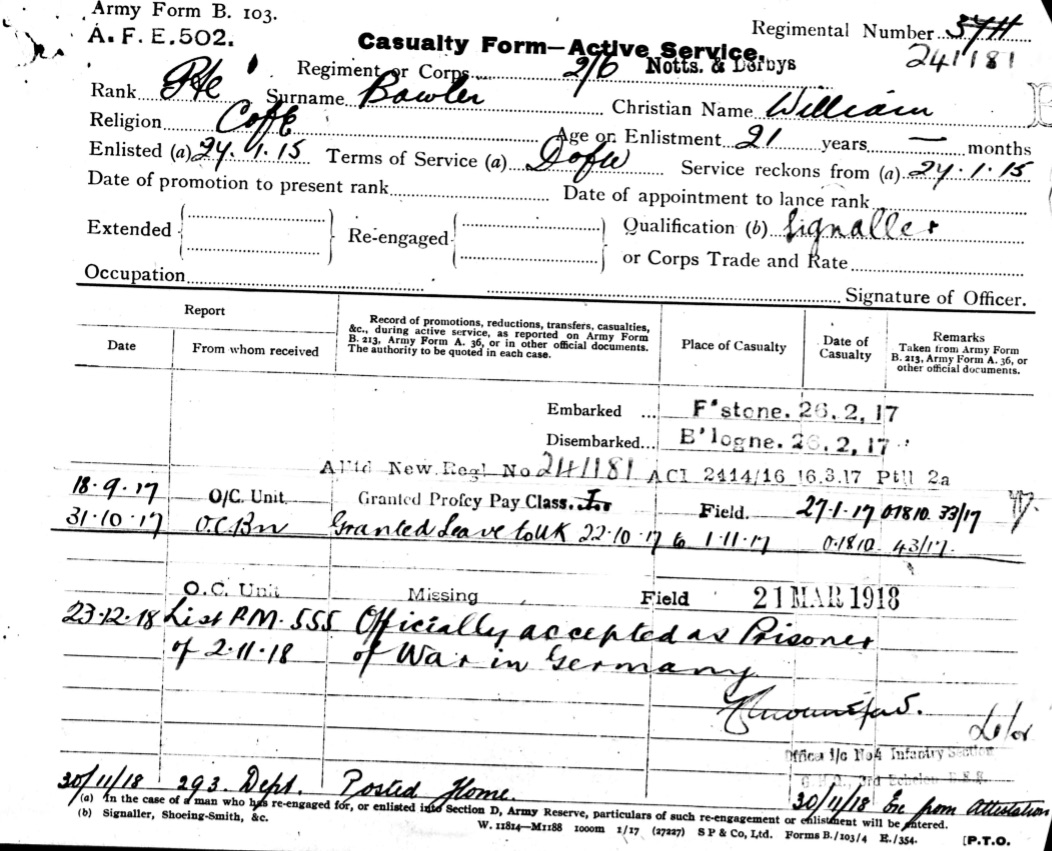 Army Form B. 103.
A. F. E. 502.
Casualty Form—Active Service.
Regimental Number 3711
241181
Regiment or Corps 2/6 Notts. & Derbys
Rank Pte Surname Bowler Christian Name William
Religion C of E Age on Enlistment 21 years — months
Enlisted (a) 24.1.15 Terms of Service (a) DofW Service reckons from (a) 24.1.15
Date of promotion to present rank Date of appointment to lance rank
Extended Re-engaged Qualification (b) Signaller
or Corps Trade and Rate
Occupation Signature of Officer.
Report
Date
From whom received
Record of promotions, reductions, transfers, casualties,
&c., during active service, as reported on Army Form
B. 213, Army Form A. 36, or in other official documents.
The authority to be quoted in each case.
Place of Casualty
Date of
Casualty
Remarks
Taken from Army Form
B. 213, Army Form A. 36, or
other official documents.
Embarked ... F'stone. 26.2,17
Disembarked... B'logne. 26.2,17
New Regl No 241181 ACI 2414/16 16.3.17 Pt II 2a
18.9.17 O/C. Unit Granted Profcy Pay Class. I Field. 27.1.17 01810 33/17
31.10.17 O.C.Bn Granted Leave to UK 22.10.17 to 1.11.17 0.1810 43/17.
O.C. Unit Missing Field 21 MAR 1918
23.12.18 List P.M. 555 Officially accepted as Prisoner
of 2.11.18 of War in Germany
Officer i/c No4 Infantry Section
G.H.Q., 3rd Echelon
30/11/18 293. Dept. Posted Home. 30/11/18 from Attestation
(a) In the case of a man who has re-engaged for, or enlisted into Section D, Army Reserve, particulars of such re-engagement or enlistment will be entered.
(b) Signaller, Shoeing-Smith, &c.
W. 11814—M1188 1000m 1/17 (27227) S P & Co, Ltd. Forms B./103/4 E./354. [P.T.O.